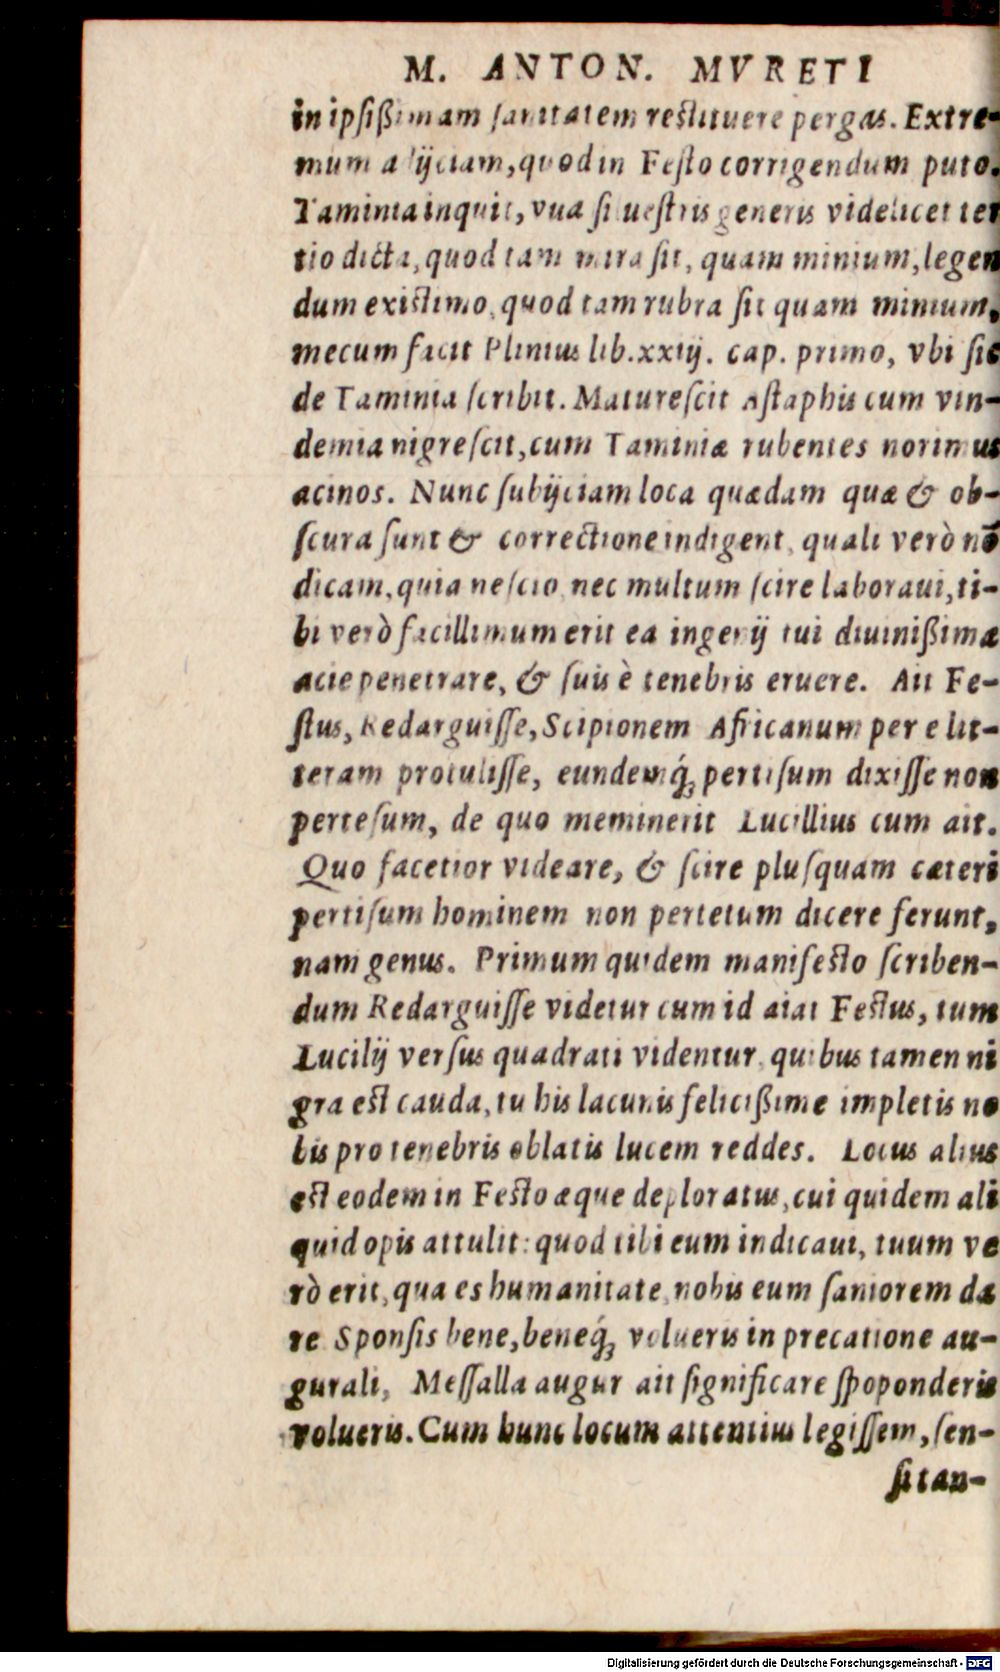 M. ANTON. MVRETI
in ipſißimam ſanitatem reſtituere pergas. Extre-
mum adijciam, quod in Feſto corrigendum puto.
Taminia inquit, vua ſilueſtris generis videlicet ter
tio dicta, quod tam mira ſit, quam minium, legen
dum exiſtimo, quod tam rubra ſit quam minium,
mecum facit Plinius lib. xxiij. cap. primo, vbi ſic
de Taminia ſcribit. Matureſcit Aſtaphis cum vin-
demia nigreſcit, cum Taminiæ rubentes norimus
acinos. Nunc ſubijciam loca quædam quæ & ob-
ſcura ſunt & correctione indigent, quali verò nō
dicam, quia neſcio nec multum ſcire laboraui, ti-
bi verò facillimum erit ea ingenij tui diuinißimæ
acie penetrare, & ſuis è tenebris eruere. Ait Fe-
ſtus, Redarguiſſe, Scipionem Africanum per e lit-
teram protuliſſe, eundemq́ꝫ pertiſum dixiſſe non
perteſum, de quo meminerit Lucillius cum ait.
Quo facetior videare, & ſcire pluſquam cæteri
pertiſum hominem non pertetum dicere ferunt,
nam genus. Primum quidem manifeſto ſcriben-
dum Redarguiſſe videtur cum id aiat Feſtus, tum
Lucilij verſus quadrati videntur, quibus tamen ni
gra eſt cauda, tu his lacunis felicißime impletis no
bis pro tenebris oblatis lucem reddes. Locus alius
eſt eodem in Feſto æque deploratus, cui quidem ali
quid opis attulit: quod tibi eum indicaui, tuum ve
rò erit, qua es humanitate, nobis eum ſaniorem da
re Sponſis bene, beneq́ꝫ volueris in precatione au-
gurali, Meſſalla augur ait ſignificare ſpoponderis
volueris. Cum hunc locum attentius legiſſem, ſen-
ſi tan-
Digitalisierung gefördert durch die Deutsche Forschungsgemeinschaft - DFG